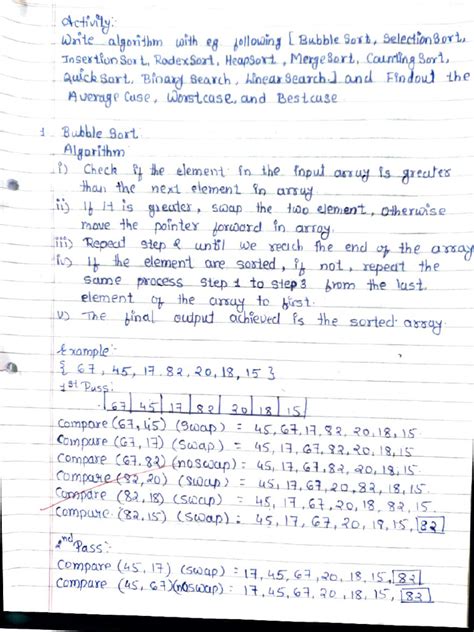 Activity:-
Write algorithm with eg following [Bubble Sort, Selection Sort,
Insertion Sort, Radex Sort, Heap Sort, Merge Sort, Counting Sort,
Quick Sort, Binary Search, Linear Search] and Findout the
Average Case, Worst case, and Best case
1. Bubble Sort.
Algorithm
i) Check if the element in the input array is greater
than the next element in array.
ii) If it is greater, swap the two element, otherwise
move the pointer forward in array.
iii) Repeat step 2 until we reach the end of the array
iv) If the element are sorted, if not, repeat the
same process step 1 to step 3 from the last
element of the array to first.
v) The final output achieved is the sorted array.
Example:-
{ 67, 45, 17, 82, 20, 18, 15 }
1st Pass:
67 | 45 | 17 | 82 | 20 | 18 | 15
Compare (67, 45) (swap) = 45, 67, 17, 82, 20, 18, 15
Compare (67, 17) (swap) = 45, 17, 67, 82, 20, 18, 15.
Compare (67, 82) (noswap) = 45, 17, 67, 82, 20, 18, 15
Compare (82, 20) (swap) = 45, 17, 67, 20, 82, 18, 15.
Compare (82, 18) (swap) = 45, 17, 67, 20, 18, 82, 15.
Compare (82, 15) (swap) = 45, 17, 67, 20, 18, 15, 82
2nd Pass:
Compare (45, 17) (swap) = 17, 45, 67, 20, 18, 15, 82
Compare (45, 67) (noswap) = 17, 45, 67, 20, 18, 15, 82